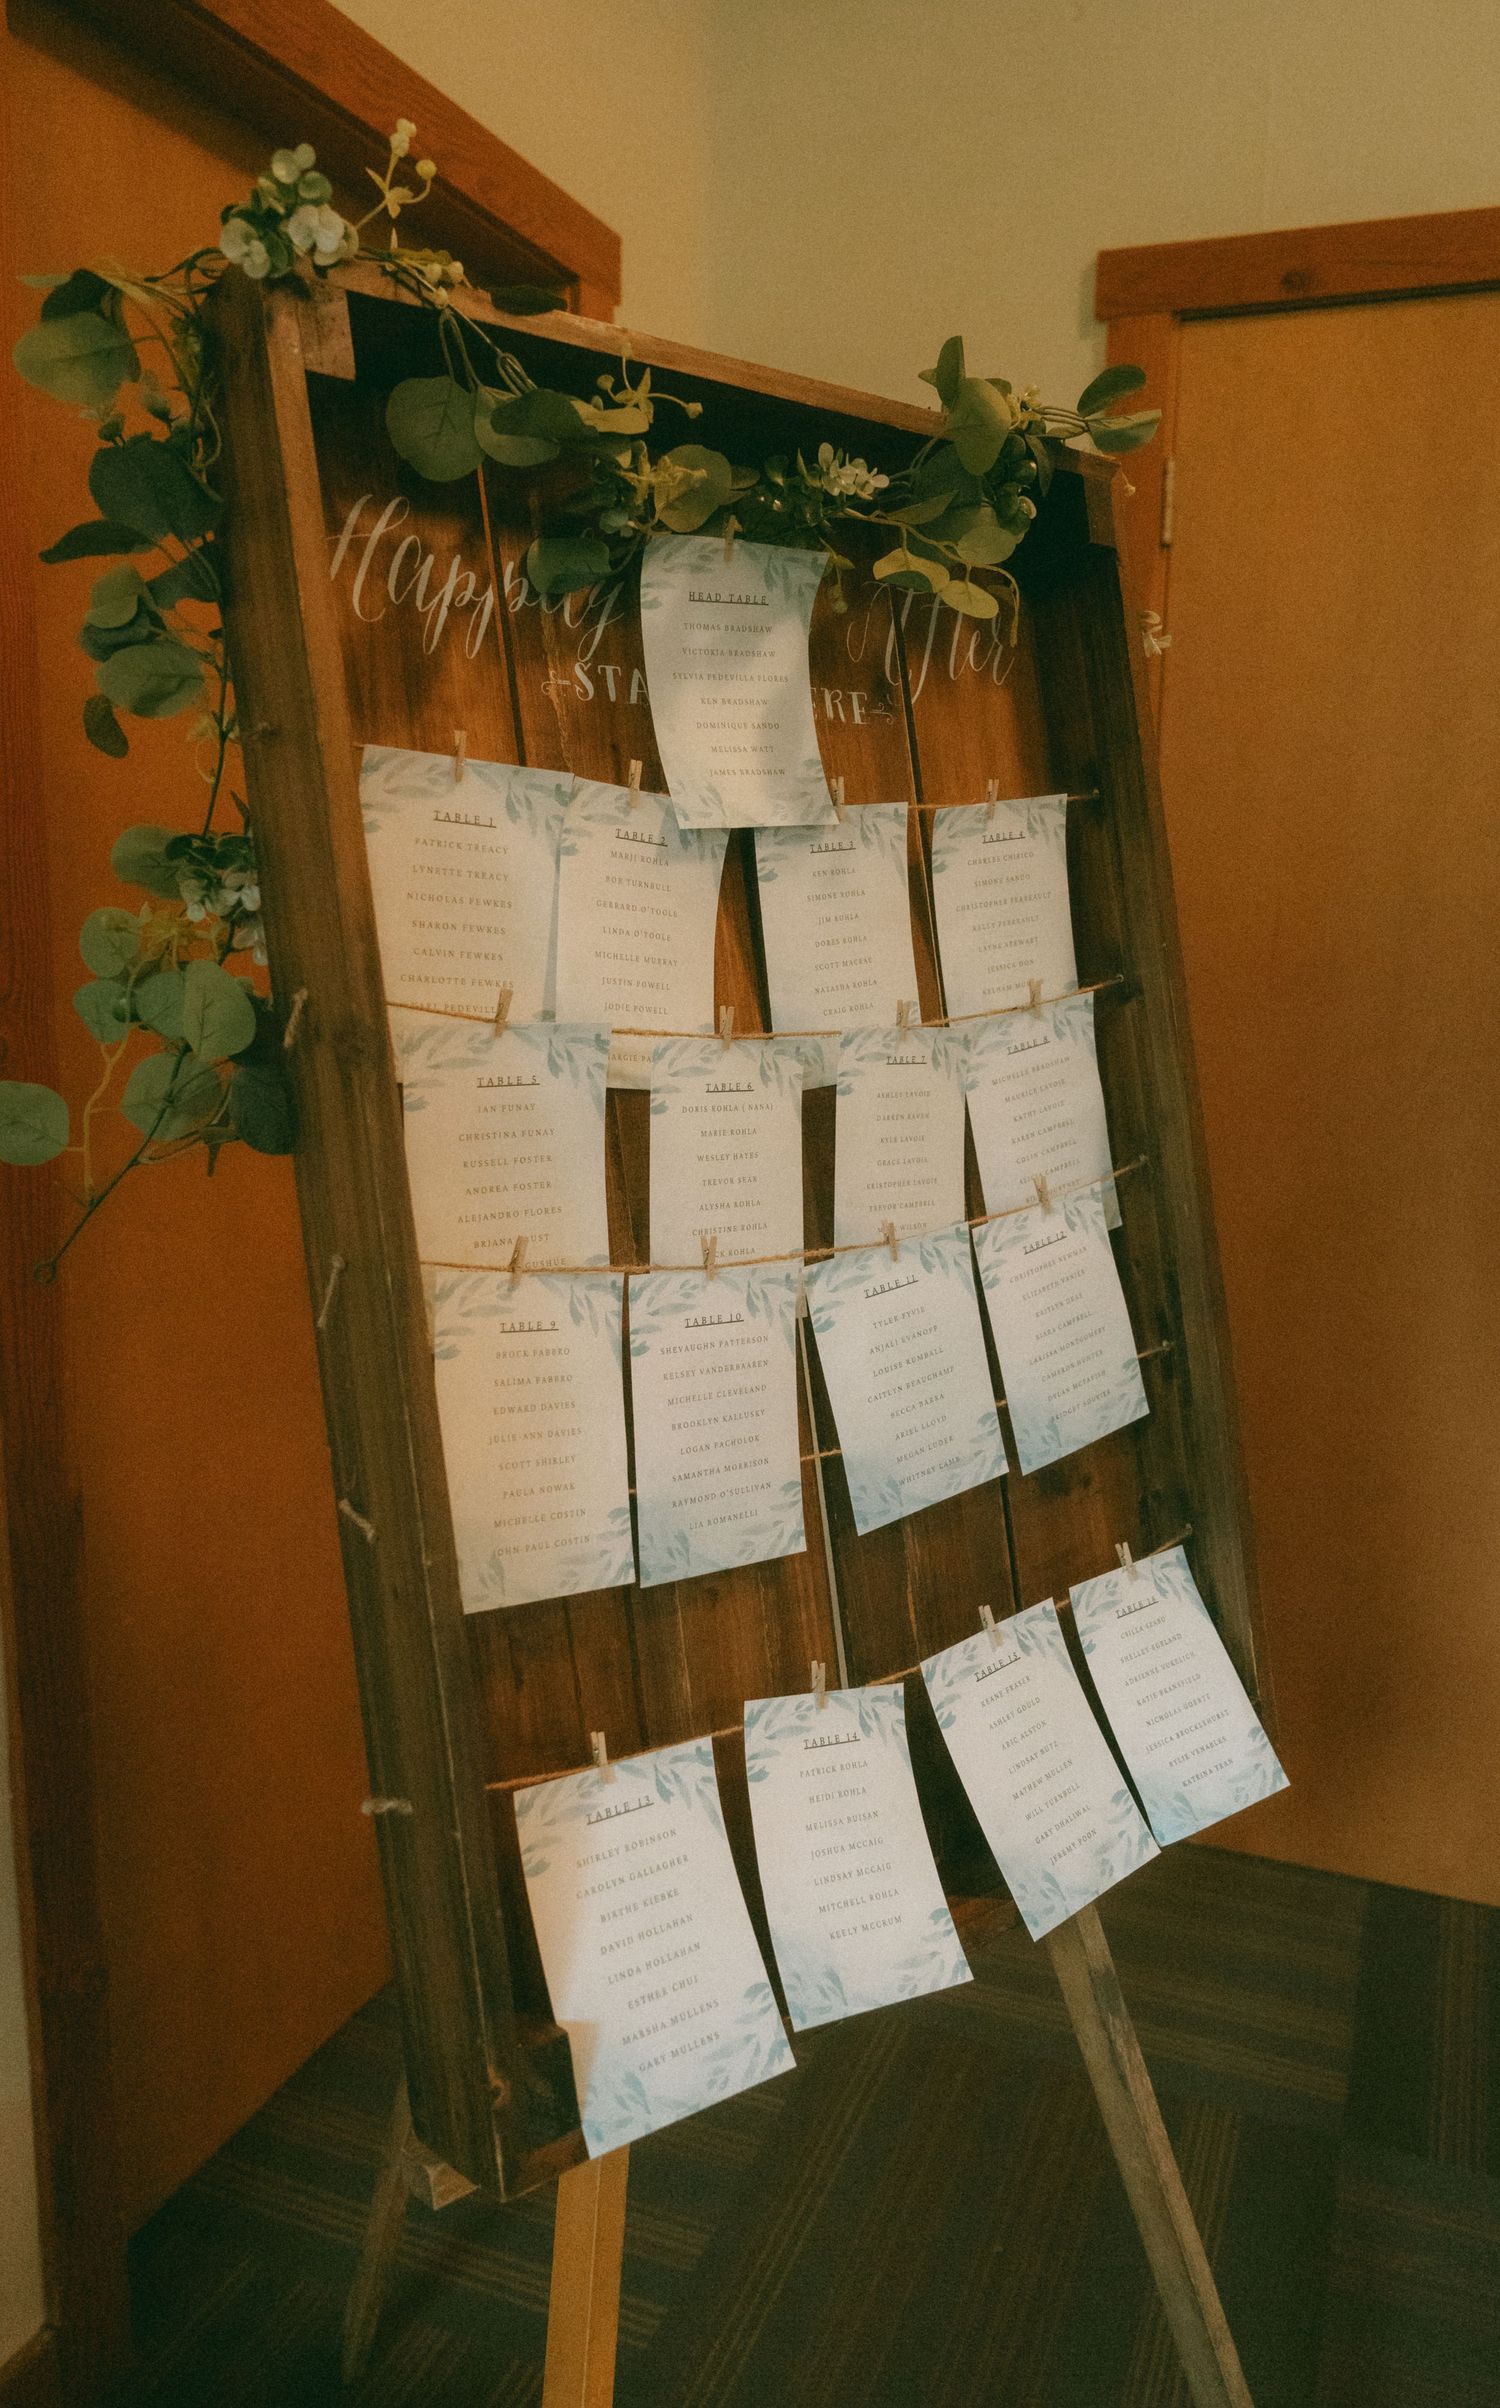 Happily After
HEAD TABLE
THOMAS BRADSHAW
VICTORIA BRADSHAW
SYLVIA PEDEVILLA FLORES
KEN BRADSHAW
DOMINIQUE SANDO
MELISSA WATT
JAMES BRADSHAW
TABLE 1
PATRICK TREACY
LYNETTE TREACY
NICHOLAS FEWKES
SHARON FEWKES
CALVIN FEWKES
CHARLOTTE FEWKES
TABLE 2
MARJI ROHLA
BOB TURNBULL
GERRARD O'TOOLE
LINDA O'TOOLE
MICHELLE MURRAY
JUSTIN POWELL
JODIE POWELL
TABLE 3
KEN ROHLA
SIMONE ROHLA
JIM ROHLA
DORES ROHLA
SCOTT MACRAE
NATASHA ROHLA
CRAIG ROHLA
TABLE 4
CHARLES CHIRICO
SIMONE SANDO
CHRISTOPHER PERRAULT
KELLY PERRAULT
LAYNE STEWART
JESSICA DON
TABLE 5
IAN FUNAY
CHRISTINA FUNAY
RUSSELL FOSTER
ANDREA FOSTER
ALEJANDRO FLORES
BRIANA
GUSHUE
TABLE 6
DORIS ROHLA ( NANA)
MARIE ROHLA
WESLEY HAYES
TREVOR SEAR
ALYSHA ROHLA
CHRISTINE ROHLA
ROHLA
TABLE 7
ASHLEY LAVOIE
DARREN RAVEN
KYLE LAVOIE
GRACE LAVOIE
KRISTOPHER LAVOIE
TREVOR CAMPBELL
WILSON
TABLE 8
MICHELLE BRADSHAW
MAURICE LAVOIE
KATHY LAVOIE
KAREN CAMPBELL
COLIN CAMPBELL
ALICIA CAMPBELL
TABLE 9
BROCK FABBRO
SALIMA FABBRO
EDWARD DAVIES
JULIE-ANN DAVIES
SCOTT SHIRLEY
PAULA NOWAK
MICHELLE COSTIN
JOHN-PAUL COSTIN
TABLE 10
SHEVAUGHN PATTERSON
KELSEY VANDERBAAREN
MICHELLE CLEVELAND
BROOKLYN KALLUSKY
LOGAN PACHOLOK
SAMANTHA MORRISON
RAYMOND O'SULLIVAN
LIA ROMANELLI
TABLE 11
TYLER FYVIE
ANJALI EVANOFF
LOUISE RUMBALL
CAITLYN BEAUCHAMP
BECCA BARRA
ARIEL LLOYD
MEGAN LUDER
WHITNEY LAMB
TABLE 12
CHRISTOPHER NEWMAN
ELIZABETH VANIER
KAITLYN DEAR
KIARA CAMPBELL
LARISSA MONTGOMERY
CAMERON HUNTER
DYLAN MCTAVISH
BRIDGET SOURIES
TABLE 13
SHIRLEY ROBINSON
CAROLYN GALLAGHER
BIRTHE KIEBKE
DAVID HOLLAHAN
LINDA HOLLAHAN
ESTHER CHUI
MARSHA MULLENS
GARY MULLENS
TABLE 14
PATRICK ROHLA
HEIDI ROHLA
MELISSA BUISAN
JOSHUA MCCAIG
LINDSAY MCCAIG
MITCHELL ROHLA
KEELY MCCRUM
TABLE 15
KEANE FRASER
ASHLEY GOULD
ARIC ALSTON
LINDSAY BUTZ
MATHEW MULLEN
WILL TURNBULL
GARY DHALIWAL
JEREMY POON
TABLE 16
CSILLA SZABO
SHELLEY BURLAND
ADRIENNE VUKELICH
KATIE BRANSFIELD
NICHOLAS GOERTZ
JESSICA BROCKLEHURST
KYLIE VENABLES
KATRINA TRAN